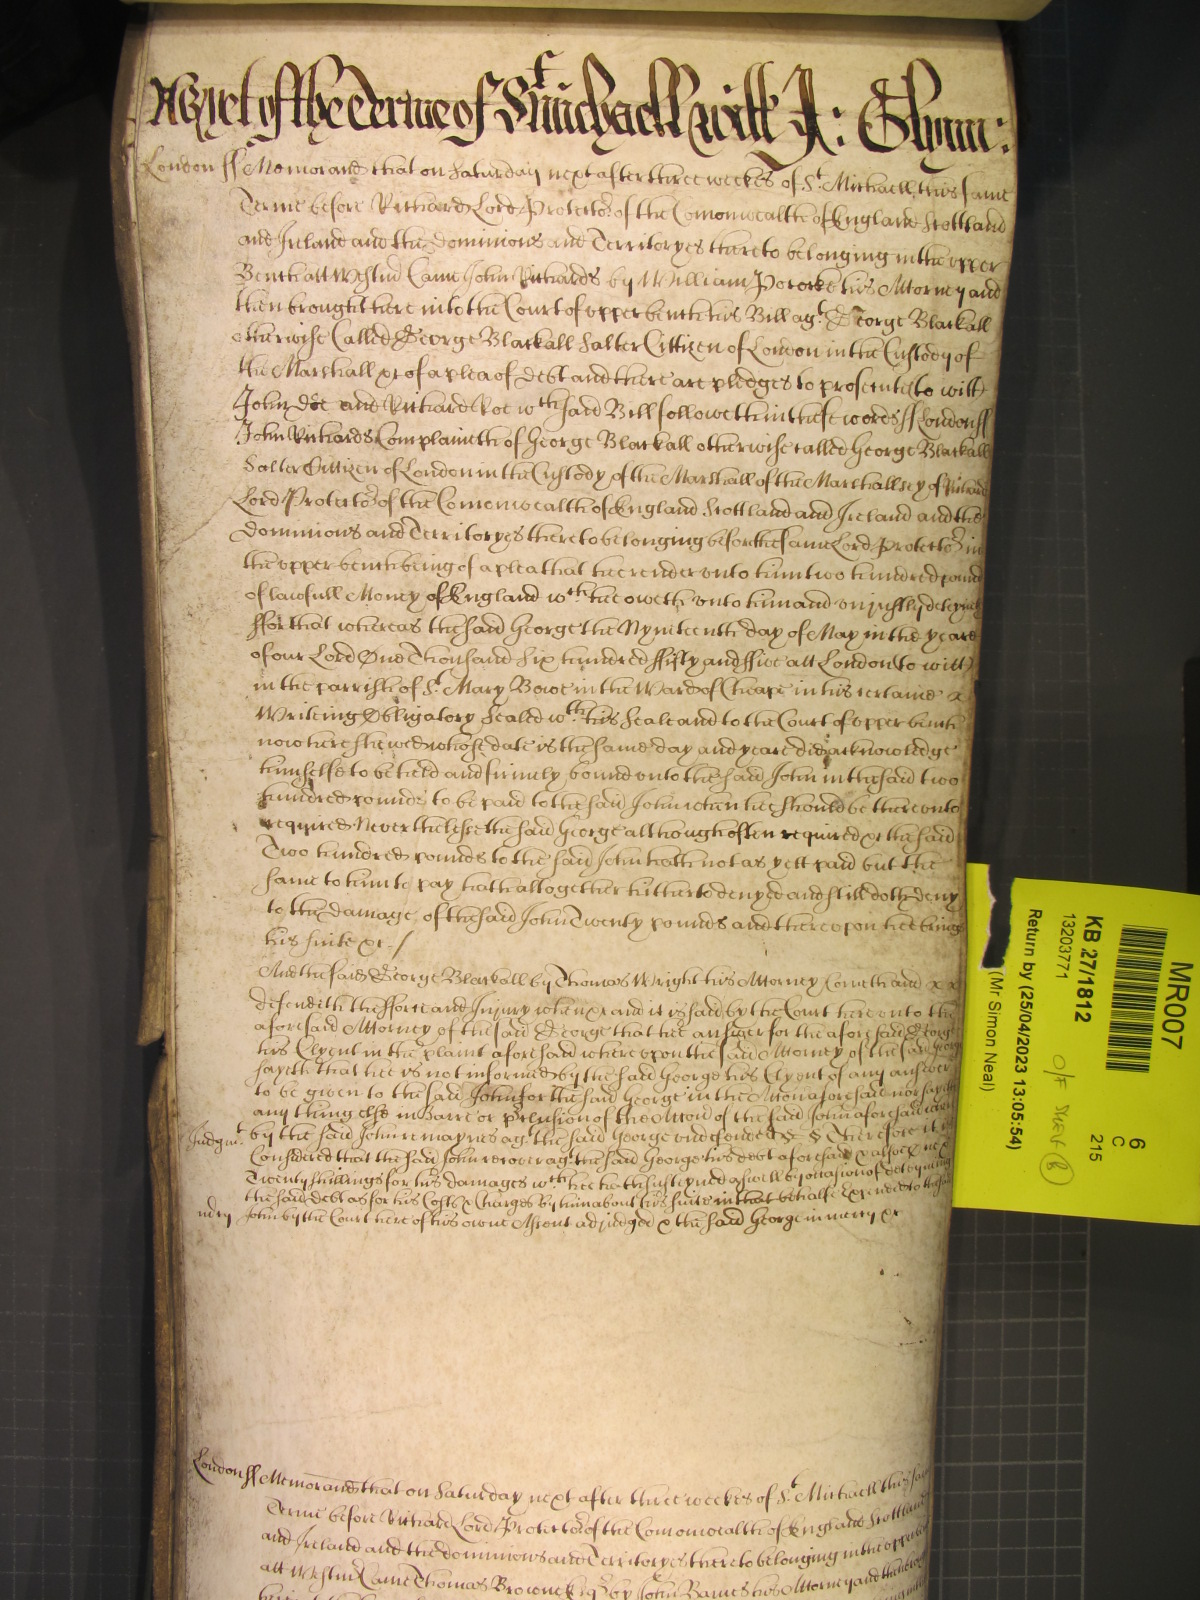 As yet of the Terme of St Michaell witt J: Glynn:
London ss Memorand that on Saturday next after three weekes of St Michaell this same
Terme before Richard Lord Protector of the Comonwealth of England Scottland
and Ireland and the Dominions and Territoryes thereto belonging in the upper
Bench att Westmr Came John Richards by William Pococke his Attorney and
then brought here into the Court of upper bench his Bill agt George Blackall
otherwise Called George Blackall Salter Cittizen of London in the Custody of
the Marshall &c of a plea of debt and there are pledges to prosecute to witt
John Doe and Richard Roe wch said Bill followeth in these words ss London ss
John Richards Complaineth of George Blackall otherwise called George Blackall
Salter Cittizen of London in the Custody of the Marshall of the Marshallsey of Richard
Lord Protector of the Comonwealth of England Scottland and Ireland and the
Dominions and Territoryes thereto belonging before the same Lord Protector in
the upper bench being of a plea that hee render unto him two hundred pound
of lawfull Money of England wch hee oweth unto him and unjustly deteyneth
ffor that whereas the said George the Nyneteenth day of May in the yeare
of our Lord One Thousand Six hundred ffifty and ffive att London to witt
in the parrish of St Mary Bowe in the Ward of Cheape in his certaine
Writeing Obligatory Sealed wth his Seale and to the Court of upper bench
now here shewed whose date is the same day and yeare did acknowledge
himselfe to be held and firmely bound unto the said John in the said two
hundred pounds to be paid to the said John when hee should be thereunto
required Neverthelesse the said George although often required &c the said
Two hundred pounds to the said John hath not as yett paid but the
same to him to pay hath altogether hitherto denyed and still doth deny
to the damage of the said John Twenty pounds and thereupon hee brings
his suite &c /
And the said George Blackall by Thomas Wright his Attorney Cometh and
defendeth the fforce and Injury when &c and it is said by the Court here unto the
aforesaid Attorney of the said George that hee answer for the aforesaid George
his Clyent in the plaint aforesaid whereupon the said Attorney of the said George
sayeth that hee is not informed by the said George his Clyent of any answer
to be given to the said John for the said George in the Accon aforesaid nor sayeth
any thing else in Barre or preclusion of the Accon of the said John aforesaid
Judgmt by the said John remaynes agt the said George undefended &c Therefore it is
Considered that the said John recover agt the said George his debt aforesaid & alsoe
Twenty shillings for his damages wch hee hath susteyned aswell by occasion of deteyning
the said debt as for his Costs & Charges by him about his suite in that behalfe Expended to the said
mcy John by the Court here of his owne Assent adjudged & the said George in mercy &c
London ss Memorand that on Saturday next after three weekes of St Michaell this same
Terme before Richard Lord Protector of the Comonwealth of England Scottland
and Ireland and the dominions and Territoryes thereto belonging in the upper
att Westmr Came Thomas by John Barnes his Attorney and then
MR007
6
C
215
KB 27/1812
13203771
O/F Shelf 8
Return by (25/04/2023 13:05:54)
(Mr Simon Neal)